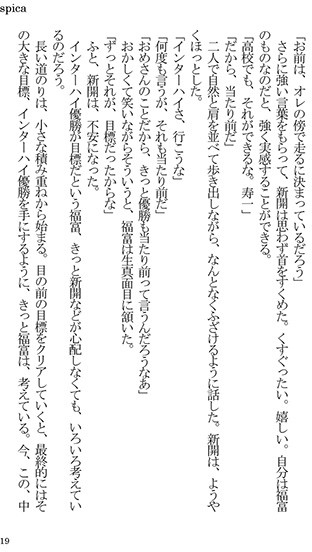 spica
「お前は、オレの傍で走るに決まっているだろう」
さらに強い言葉をもらって、新開は思わず首をすくめた。くすぐったい。嬉しい。自分は福富
のものなのだと、強く実感することができる。
「高校でも、それができるな。寿一」
「だから、当たり前だ」
二人で自然と肩を並べて歩き出しながら、なんとなくふざけるように話した。新開は、ようや
くほっとした。
「インターハイさ、行こうな」
「何度も言うが、それも当たり前だ」
「おめさんのことだから、きっと優勝も当たり前って言うんだろうなあ」
おかしくて笑いながらそういうと、福富は生真面目に頷いた。
「ずっとそれが、目標だったからな」
ふと、新開は、不安になった。
インターハイ優勝が目標だという福富、きっと新開などが心配しなくても、いろいろ考えてい
るのだろう。
長い道のりは、小さな積み重ねから始まる。目の前の目標をクリアしていくと、最終的にはそ
の大きな目標、インターハイ優勝を手にするように、きっと福富は、考えている。今、この、中
19